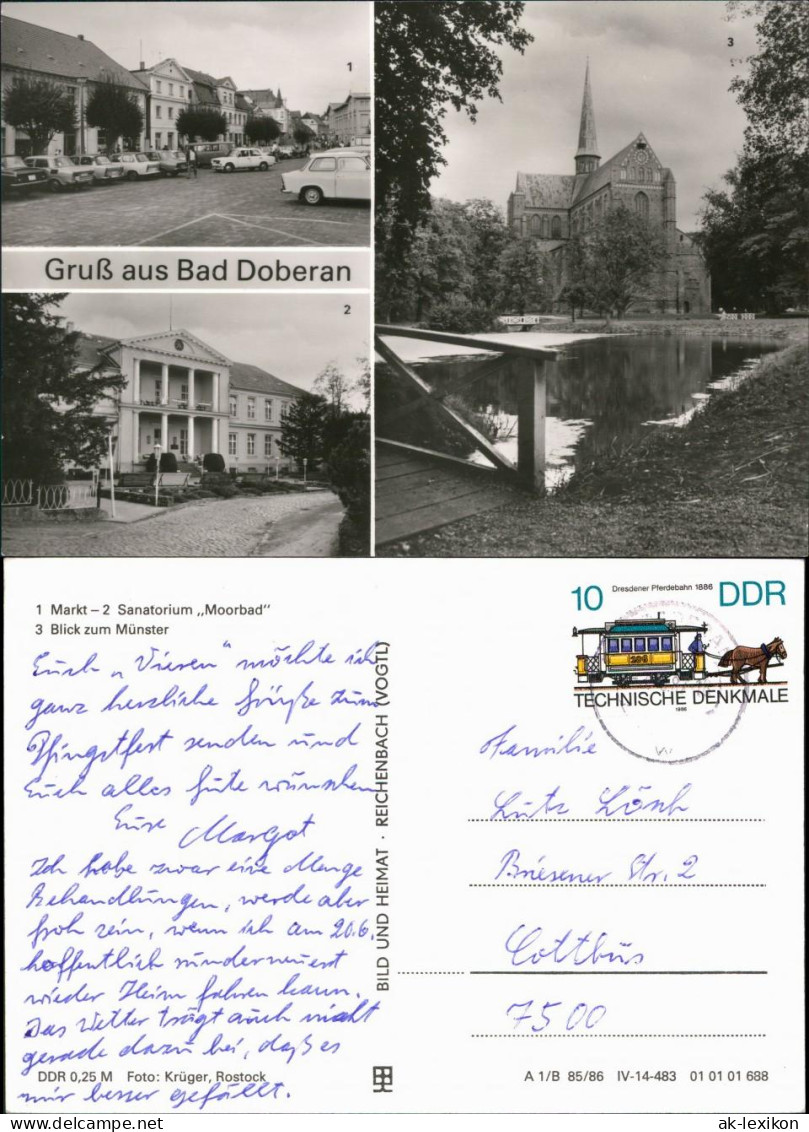 1
3
Gruß aus Bad Doberan
2
1 Markt – 2 Sanatorium „Moorbad"
3 Blick zum Münster
Euch „Vieren" möchte ich
ganz herzliche Grüße zum
Pfingstfest senden und
Euch alles Gute wünschen
Eure Margot
Ich habe zwar eine Menge
Behandlungen, werde aber
froh sein, wenn ich am 20.6.
hoffentlich runderneuert
wieder Heim fahren kann.
Das Wetter trägt auch nicht
gerade dazu bei, daß es
mir besser gefällt.
DDR 0,25 M Foto: Krüger, Rostock
BILD UND HEIMAT · REICHENBACH (VOGTL)
10 Dresdener Pferdebahn 1886 DDR
206
TECHNISCHE DENKMALE
1986
Familie
Lutz Lösch
Briesener Str. 2
Cottbus
7500
A 1/B 85/86 IV-14-483 01 01 01 688
ak-lexikon